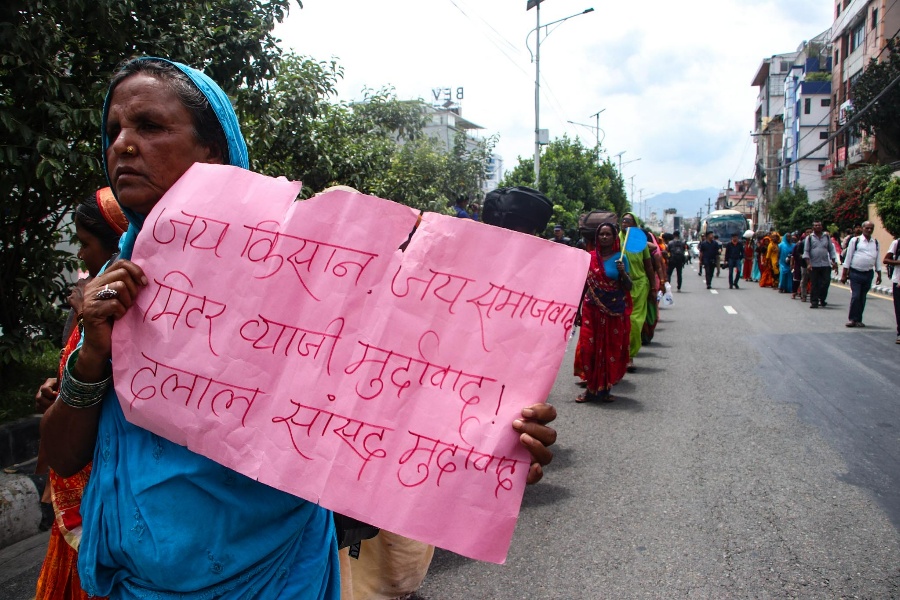 जय किसान. जय समाजवाद
मिटर व्याजी मुर्दावाद!
दलाल सांसद मुर्दावाद
BEV